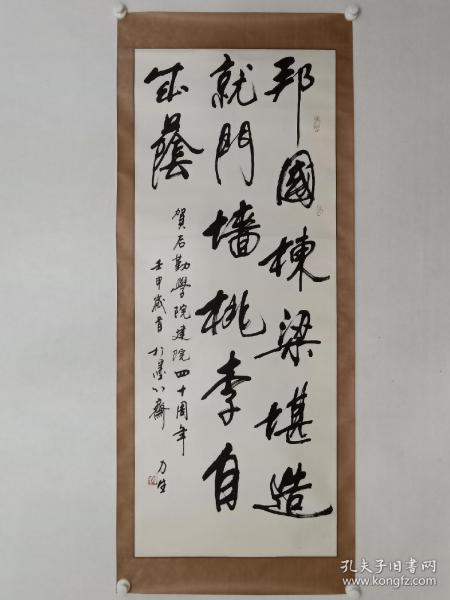 邦國棟梁堪造
就門墻桃李自
成蔭
賀后勤學院建院四十周年
壬申歲首於墨心齋 力生
孔夫子旧书网
www.kongfz.com